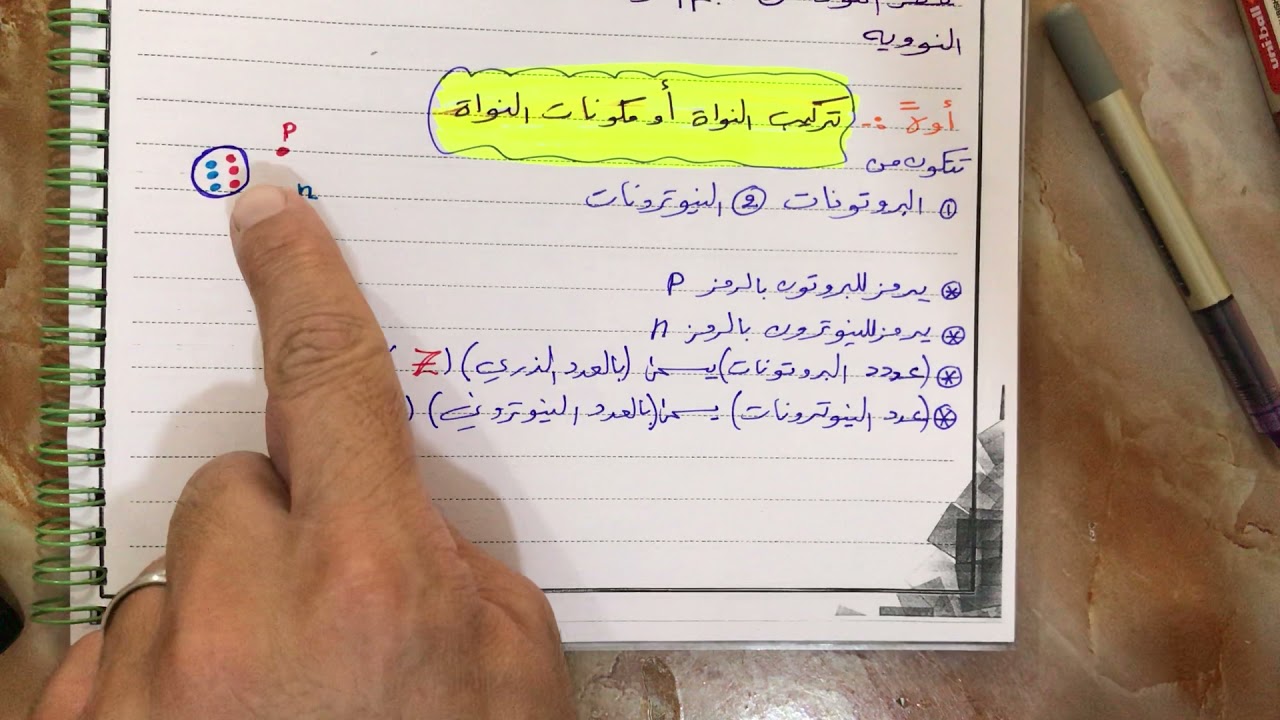 النوويه
أولاً :- تركيب النواة أو مكونات النواة
تتكون من
① البروتونات ② النيوترونات
P
n
⊛ يرمز للبروتون بالرمز P
⊛ يرمز للنيوترون بالرمز n
⊛ (عدد البروتونات) يسمى (بالعدد الذري) (Z
⊛ (عدد النيوترونات) يسمى (بالعدد النيوتروني) (
uni-ball